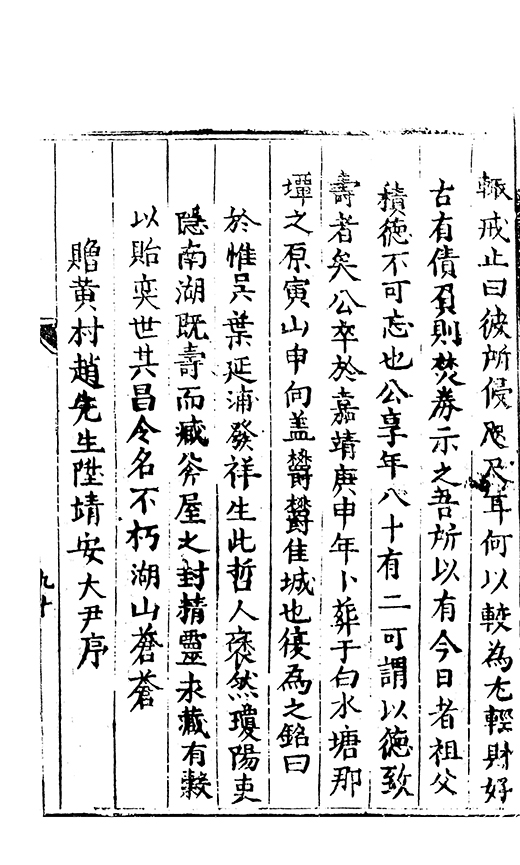 輙戒止曰彼所侵咫尺耳何以較為尢輕財好
古有債負則焚券示之吾所以有今日者祖父
積德不可忘也公享年八十有二可謂以德致
壽者矣公卒於嘉靖庚申年卜葬于白水塘那
墠之原寅山申向盖欝欝佳城也復為之銘曰
於惟吳葉延浦發祥生此哲人褒然瓊陽吏
隠南湖既壽而臧斧屋之封精靈永藏有穀
以貽奕世共昌令名不朽湖山蒼蒼
贈黄村趙先生陞靖安大尹序
九十